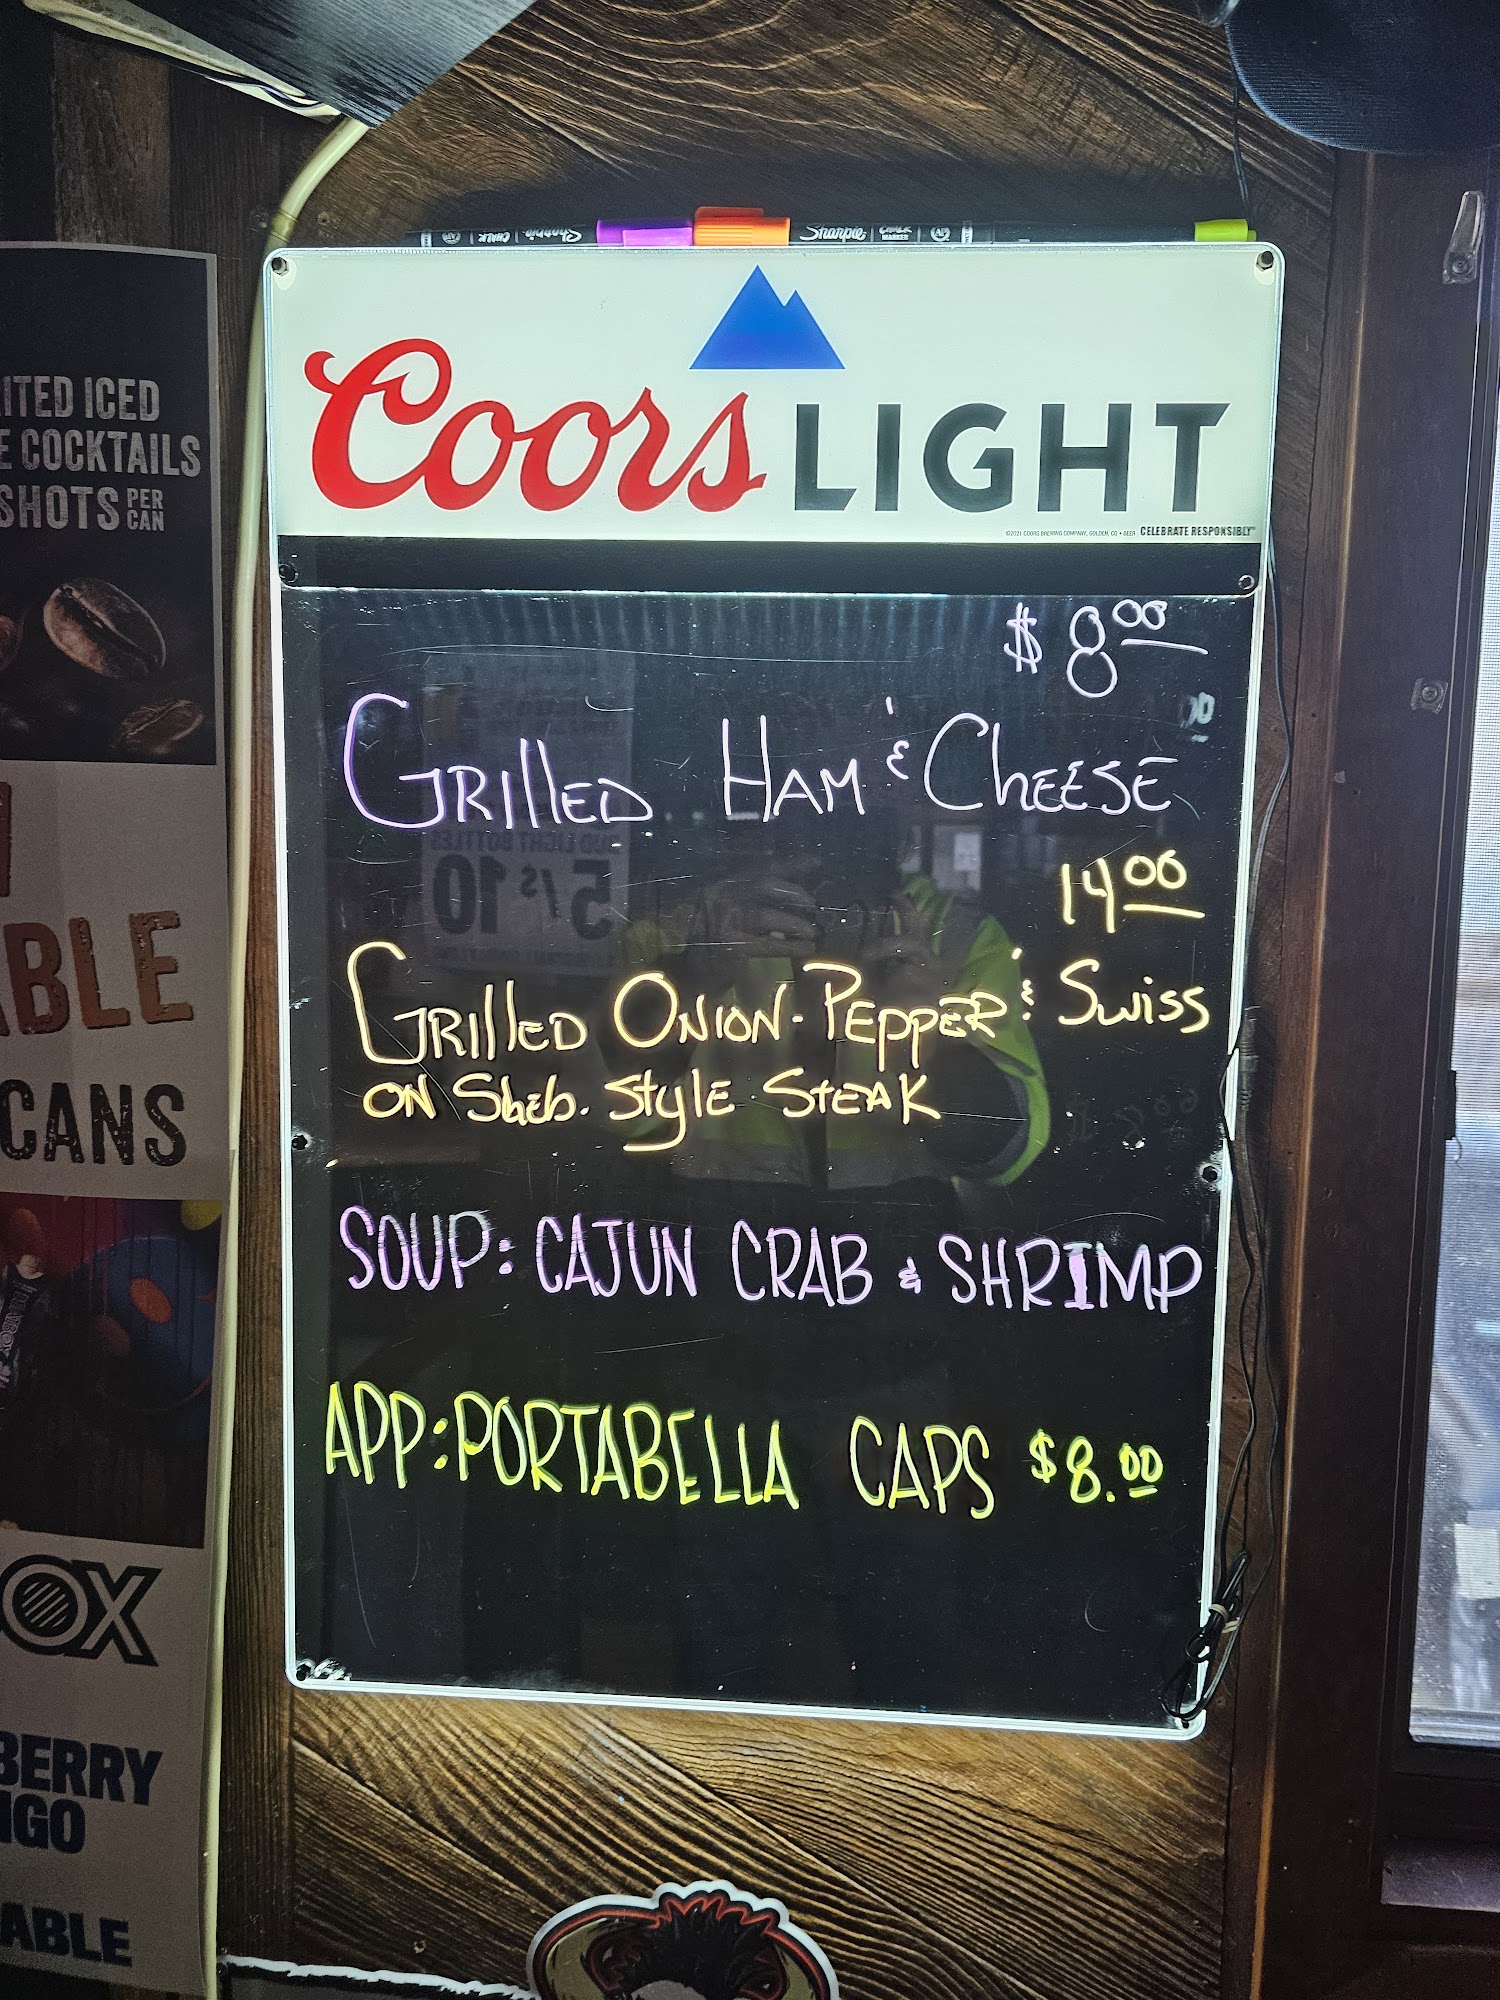 ITED ICED
E COCKTAILS
SHOTS PER CAN
ABLE
CANS
OX
BERRY
IGO
ABLE
Sharpie CHALK
Sharpie CHALK MARKER
Coors LIGHT
©2021 COORS BREWING COMPANY, GOLDEN, CO • BEER CELEBRATE RESPONSIBLY®
$ 8 00
GRIllED HAM & ChEESE
14 00
GRIllED ONION - PEPPER & SWISS
ON Sheb. Style STEAK
SOUP: CAJUN CRAB & SHRIMP
APP: PORTABELLA CAPS $8.00
BUD LIGHT BOTTLES
5/$10